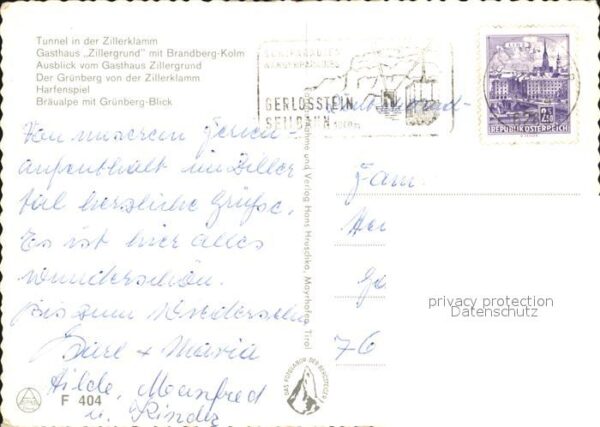 Tunnel in der Zillerklamm
Gasthaus „Zillergrund" mit Brandberg-Kolm
Ausblick vom Gasthaus Zillergrund
Der Grünberg von der Zillerklamm
Harfenspiel
Bräualpe mit Grünberg-Blick
WANDERPARADIES
GERLOSSTEIN
SEILBAHN
2 S
REPUBLIK ÖSTERREICH
Von unserem Ferien-
aufenthalt im Ziller
tal herzliche Grüße.
Es ist hier alles
wunderschön.
Bis zum Wiedersehn
Karl + Maria
Hilde, Manfred
u. Kinder
F 404
und Verlag Hans Hruschka, Mayrhofen, Tirol
DAS FOTOLABOR DER BERGSTEIGER
Fam.
Hei
Ge
76
privacy protection
Datenschutz